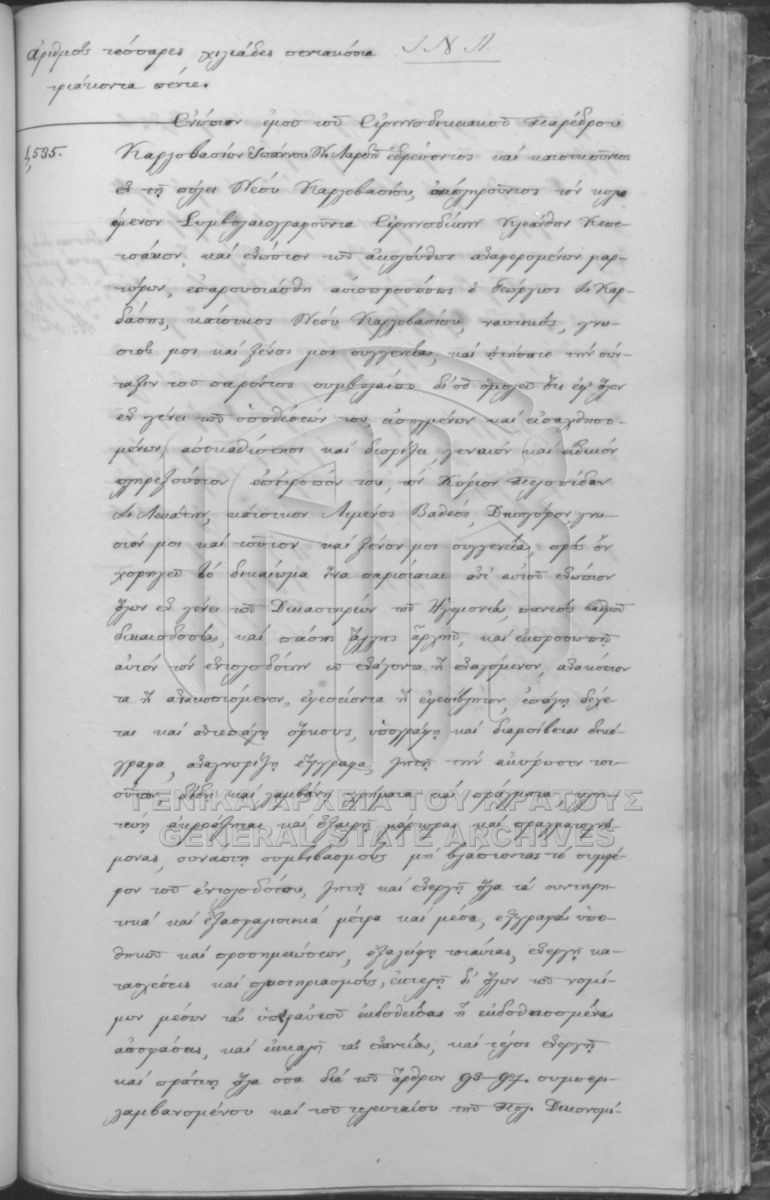 Ἀριθμὸς τέσσαρες χιλιάδες πεντακόσια
τριάκοντα πέντε.
4,535.
Ἐνώπιον ἐμοῦ τοῦ Εἰρηνοδικειακοῦ Παρέδρου
Καρλοβασίων Ἰωάννου Ν. ἑδρεύοντος καὶ κατοικοῦντος
ἐν τῇ πόλει Νέου Καρλοβασίου, ἀναπληροῦντος τὸν κωλυ
όμενον Συμβολαιογραφοῦντα Εἰρηνοδίκην Κλεάνθην
καὶ ἐνώπιον τῶν ἀκολούθως ἀναφερομένων μαρ-
τύρων, ἐπαρουσιάσθη αὐτοπροσώπως ὁ Γεώργιος Δ. Καρ-
δάσης, κάτοικος Νέου Καρλοβασίου, ναυτικός, γνω-
στός μοι καὶ ξένος μοι συγγενείας, καὶ ᾐτήσατο τὴν σύν-
ταξιν τοῦ παρόντος συμβολαίου δι' οὗ ὁμολογεῖ ὅτι ἐφ' ὅλων
ἐν γένει τῶν ὑποθέσεών του, εἰσηγμένων καὶ εἰσαχθησο-
μένων, ἀποκαθίστησι καὶ διορίζει γενικὸν καὶ εἰδικὸν
πληρεξούσιον ἐπίτροπόν του, τὸν Κύριον Πελοπίδαν
κάτοικον Λιμένος Βαθέος, Δικηγόρον, γνω-
στόν μοι καὶ τοῦτον καὶ ξένον μοι συγγενείας, πρὸς ὃν
χορηγεῖ τὸ δικαίωμα ἵνα παρίσταται ἀντ' αὐτοῦ ἐνώπιον
ὅλων ἐν γένει τῶν Δικαστηρίων τῆς Ἡγεμονίας, παντὸς βαθμοῦ
δικαιοδοσίας, καὶ πάσης ἄλλης ἀρχῆς, καὶ ἐκπροσωπῇ
αὐτὸν τὸν ἐντολοδότην ὡς ἐνάγοντα ἢ ἐναγόμενον, ἀνακόπτον
τα ἢ ἀνακοπτόμενον, ἐφεσιβάλλοντα ἢ ἐφεσίβλητον, ἐπάγῃ δέχε
ται καὶ ἀντεπάγῃ ὅρκους, ὑπογράφῃ καὶ διαμείβεται δικό-
γραφα, ἀναγνωρίζῃ ἔγγραφα, ζητῇ τὴν ἀκύρωσιν τοι-
ούτων, δίδῃ καὶ λαμβάνῃ χρήματα καὶ πράγματα,
καὶ ἐξαιρῇ μάρτυρας καὶ πραγματογνώ-
μονας, συνάπτῃ συμβιβασμοὺς μὴ βλάπτοντας τὸ συμφέ-
ρον τοῦ ἐντολοδότου, ζητῇ καὶ ἐνεργῇ ὅλα τὰ συντηρη-
τικὰ καὶ ἐξασφαλιστικὰ μέτρα καὶ μέσα, ἐγγραφὰς ὑπο-
θηκῶν καὶ προσημειώσεων, ἐξαλείφῃ τοιαύτας, ἐνεργῇ κα-
τασχέσεις καὶ πλειστηριασμούς, ἐκτελῇ δι' ὅλων τῶν νομί-
μων μέσων τὰς ὑπὲρ αὐτοῦ ἐκδοθείσας ἢ ἐκδοθησομένας
ἀποφάσεις, καὶ ἐκκαλῇ τὰς ἐναντίας, καὶ τέλος ἐνεργῇ
καὶ πράττῃ ὅλα ὅσα διὰ τῶν ἄρθρων 93-97. συμπερι-
λαμβανομένου καὶ τοῦ τελευταίου τῆς Πολ. Δικονομί-
ΓΕΝΙΚΑ ΑΡΧΕΙΑ ΤΟΥ ΚΡΑΤΟΥΣ
GENERAL STATE ARCHIVES